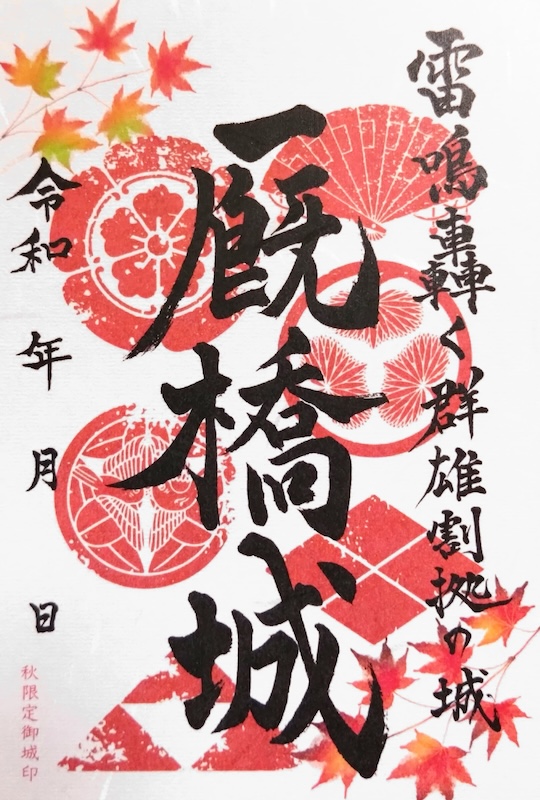 雷鳴轟く群雄割拠の城
厩橋城
令和 年 月 日
秋限定御城印